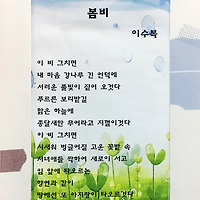 봄비
이수복
이 비 그치면
내 마음 강나루 긴 언덕에
서러운 풀빛이 짙어 오것다
푸르른 보리밭길
맑은 하늘에
종달새만 무어라고 지껄이것다
이 비 그치면
시새워 벙글어질 고운 꽃밭 속
처녀애들 짝하여 새로이 서고
임 앞에 타오르는
향연과 같이
땅에선 또 아지랑이 타오르것다